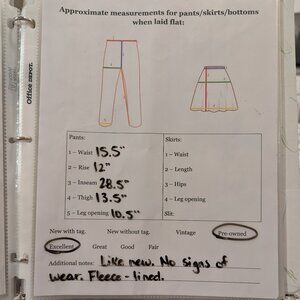 Approximate measurements for pants/skirts/bottoms
when laid flat:
Office DEPOT.
Pants:
Skirts:
1 – Waist 15.5"
1 – Waist
2 – Rise 12"
2 – Length
3 – Inseam 28.5"
3 – Hips
4 – Thigh 13.5"
4 – Leg opening
5 – Leg opening 10.5"
Slit:
New with tag. New without tag. Vintage Pre-owned
Excellent Great Good Fair
Additional notes: Like new. No signs of
wear. Fleece-lined.